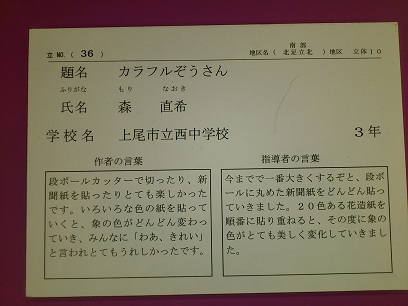 立 NO.( 36 )
南部
地区名( 北足立北 )地区 立体10
題名 カラフルぞうさん
ふりがな もり なおき
氏名 森 直希
学校名 上尾市立西中学校 3年
作者の言葉
段ボールカッターで切ったり、新
聞紙を貼ったりとても楽しかった
です。いろいろな色の紙を貼って
いくと、象の色がどんどん変わっ
ていき、みんなに「わあ、きれい」
と言われとてもうれしかったです。
指導者の言葉
今までで一番大きくするぞと、段ボ
ールに丸めた新聞紙をどんどん貼っ
ていきました。20色ある花造紙を
順番に貼り重ねると、その度に象の
色がとても美しく変化していきまし
た。